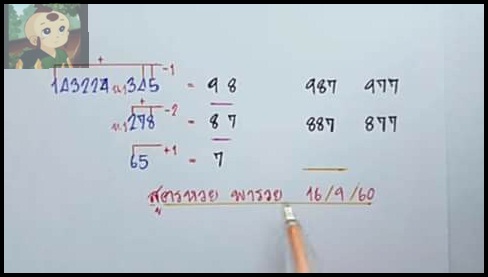 + -1
143224 น.1 345 = 98 987 977
+ -2
น.1 278 = 87 887 877
+1
65 = 7
สูตรหวย พารวย 16/9/60